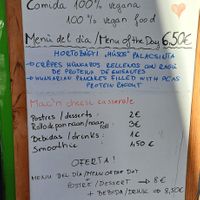 Comida 100% vegana
100% vegan food
Menú del día/Menu of the Day 6,50€
HORTOBÁGYI "HÚSOS" PALACSINTA
→ CRÊPES HÚNGAROS RELLENOS CON RAGÚ
DE PROTEINA DE GUISANTES
→ HUNGARIAN PANCAKES FILLED WITH PEAS
PROTEIN RAGOUT
Mac'n cheese casserole
Postres / desserts : 2€
Rollo de pan naan/naan roll : 3€
Bebidas / drinks : 1€
Smoothie 4,50€
OFERTA!
MENU DEL DIA/MENU OF THE DAY
POSTRE / DESSERT → 8€
+ BEBIDA/DRINK → 8,50€